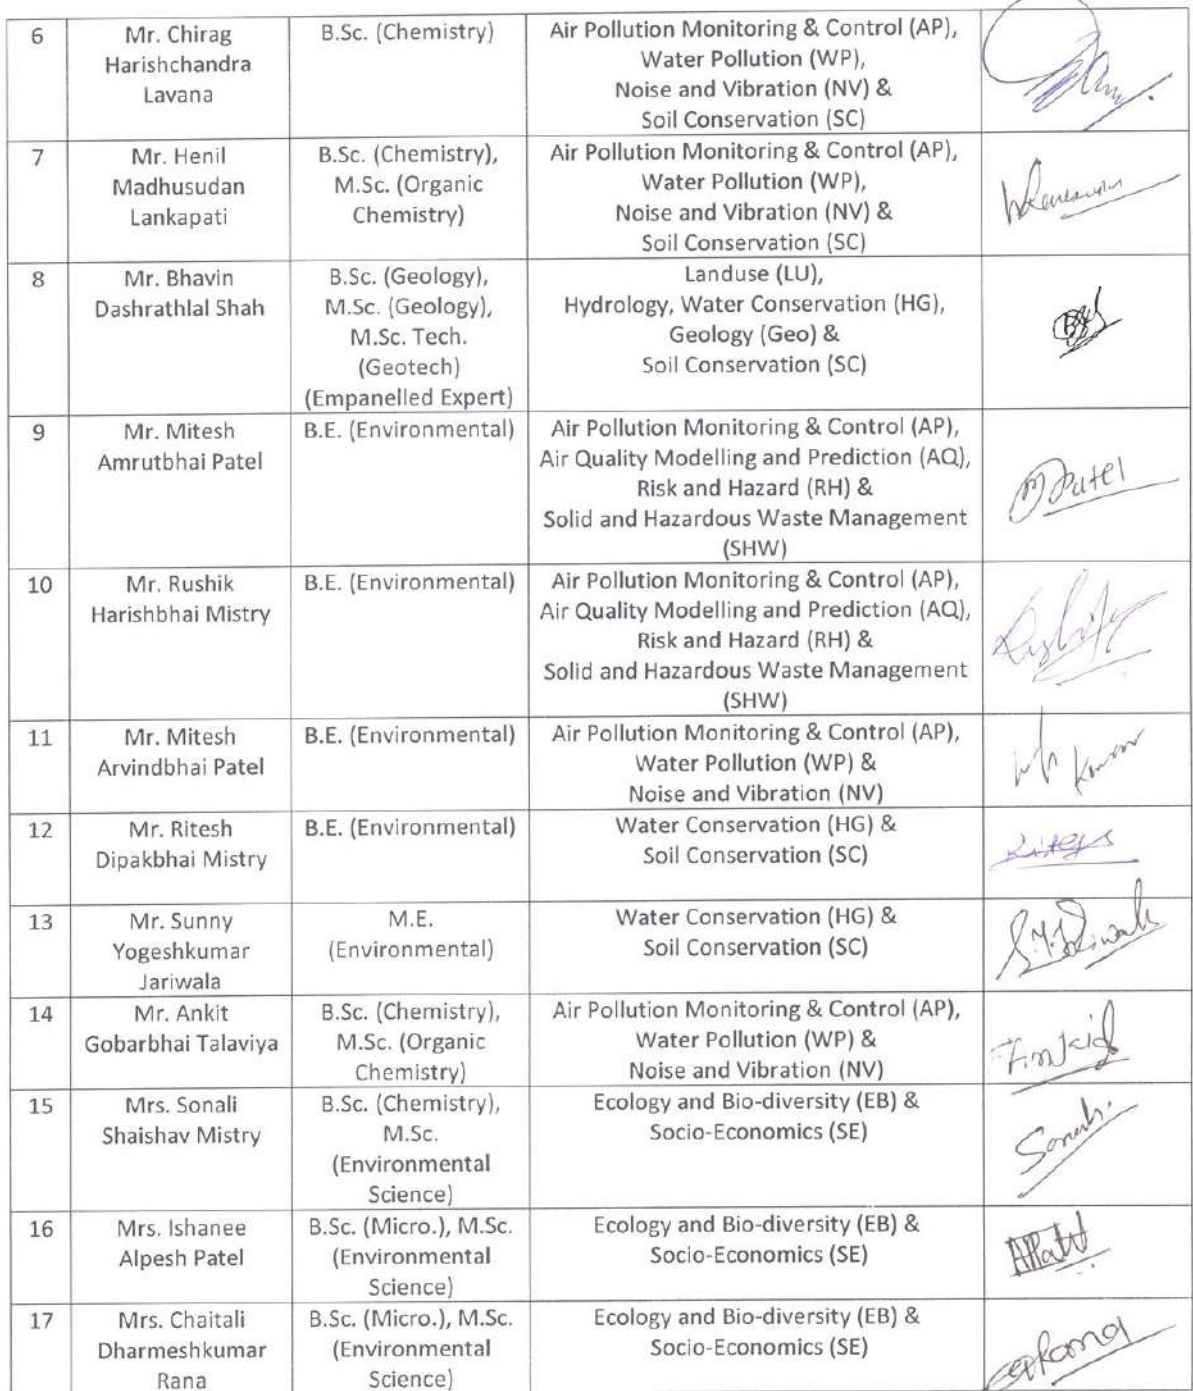 6
Mr. Chirag
Harishchandra
Lavana
B.Sc. (Chemistry)
Air Pollution Monitoring & Control (AP),
Water Pollution (WP),
Noise and Vibration (NV) &
Soil Conservation (SC)
7
Mr. Henil
Madhusudan
Lankapati
B.Sc. (Chemistry),
M.Sc. (Organic
Chemistry)
Air Pollution Monitoring & Control (AP),
Water Pollution (WP),
Noise and Vibration (NV) &
Soil Conservation (SC)
8
Mr. Bhavin
Dashrathlal Shah
B.Sc. (Geology),
M.Sc. (Geology),
M.Sc. Tech.
(Geotech)
(Empanelled Expert)
Landuse (LU),
Hydrology, Water Conservation (HG),
Geology (Geo) &
Soil Conservation (SC)
9
Mr. Mitesh
Amrutbhai Patel
B.E. (Environmental)
Air Pollution Monitoring & Control (AP),
Air Quality Modelling and Prediction (AQ),
Risk and Hazard (RH) &
Solid and Hazardous Waste Management
(SHW)
M Patel
10
Mr. Rushik
Harishbhai Mistry
B.E. (Environmental)
Air Pollution Monitoring & Control (AP),
Air Quality Modelling and Prediction (AQ),
Risk and Hazard (RH) &
Solid and Hazardous Waste Management
(SHW)
11
Mr. Mitesh
Arvindbhai Patel
B.E. (Environmental)
Air Pollution Monitoring & Control (AP),
Water Pollution (WP) &
Noise and Vibration (NV)
12
Mr. Ritesh
Dipakbhai Mistry
B.E. (Environmental)
Water Conservation (HG) &
Soil Conservation (SC)
13
Mr. Sunny
Yogeshkumar
Jariwala
M.E.
(Environmental)
Water Conservation (HG) &
Soil Conservation (SC)
14
Mr. Ankit
Gobarbhai Talaviya
B.Sc. (Chemistry),
M.Sc. (Organic
Chemistry)
Air Pollution Monitoring & Control (AP),
Water Pollution (WP) &
Noise and Vibration (NV)
15
Mrs. Sonali
Shaishav Mistry
B.Sc. (Chemistry),
M.Sc.
(Environmental
Science)
Ecology and Bio-diversity (EB) &
Socio-Economics (SE)
16
Mrs. Ishanee
Alpesh Patel
B.Sc. (Micro.), M.Sc.
(Environmental
Science)
Ecology and Bio-diversity (EB) &
Socio-Economics (SE)
17
Mrs. Chaitali
Dharmeshkumar
Rana
B.Sc. (Micro.), M.Sc.
(Environmental
Science)
Ecology and Bio-diversity (EB) &
Socio-Economics (SE)